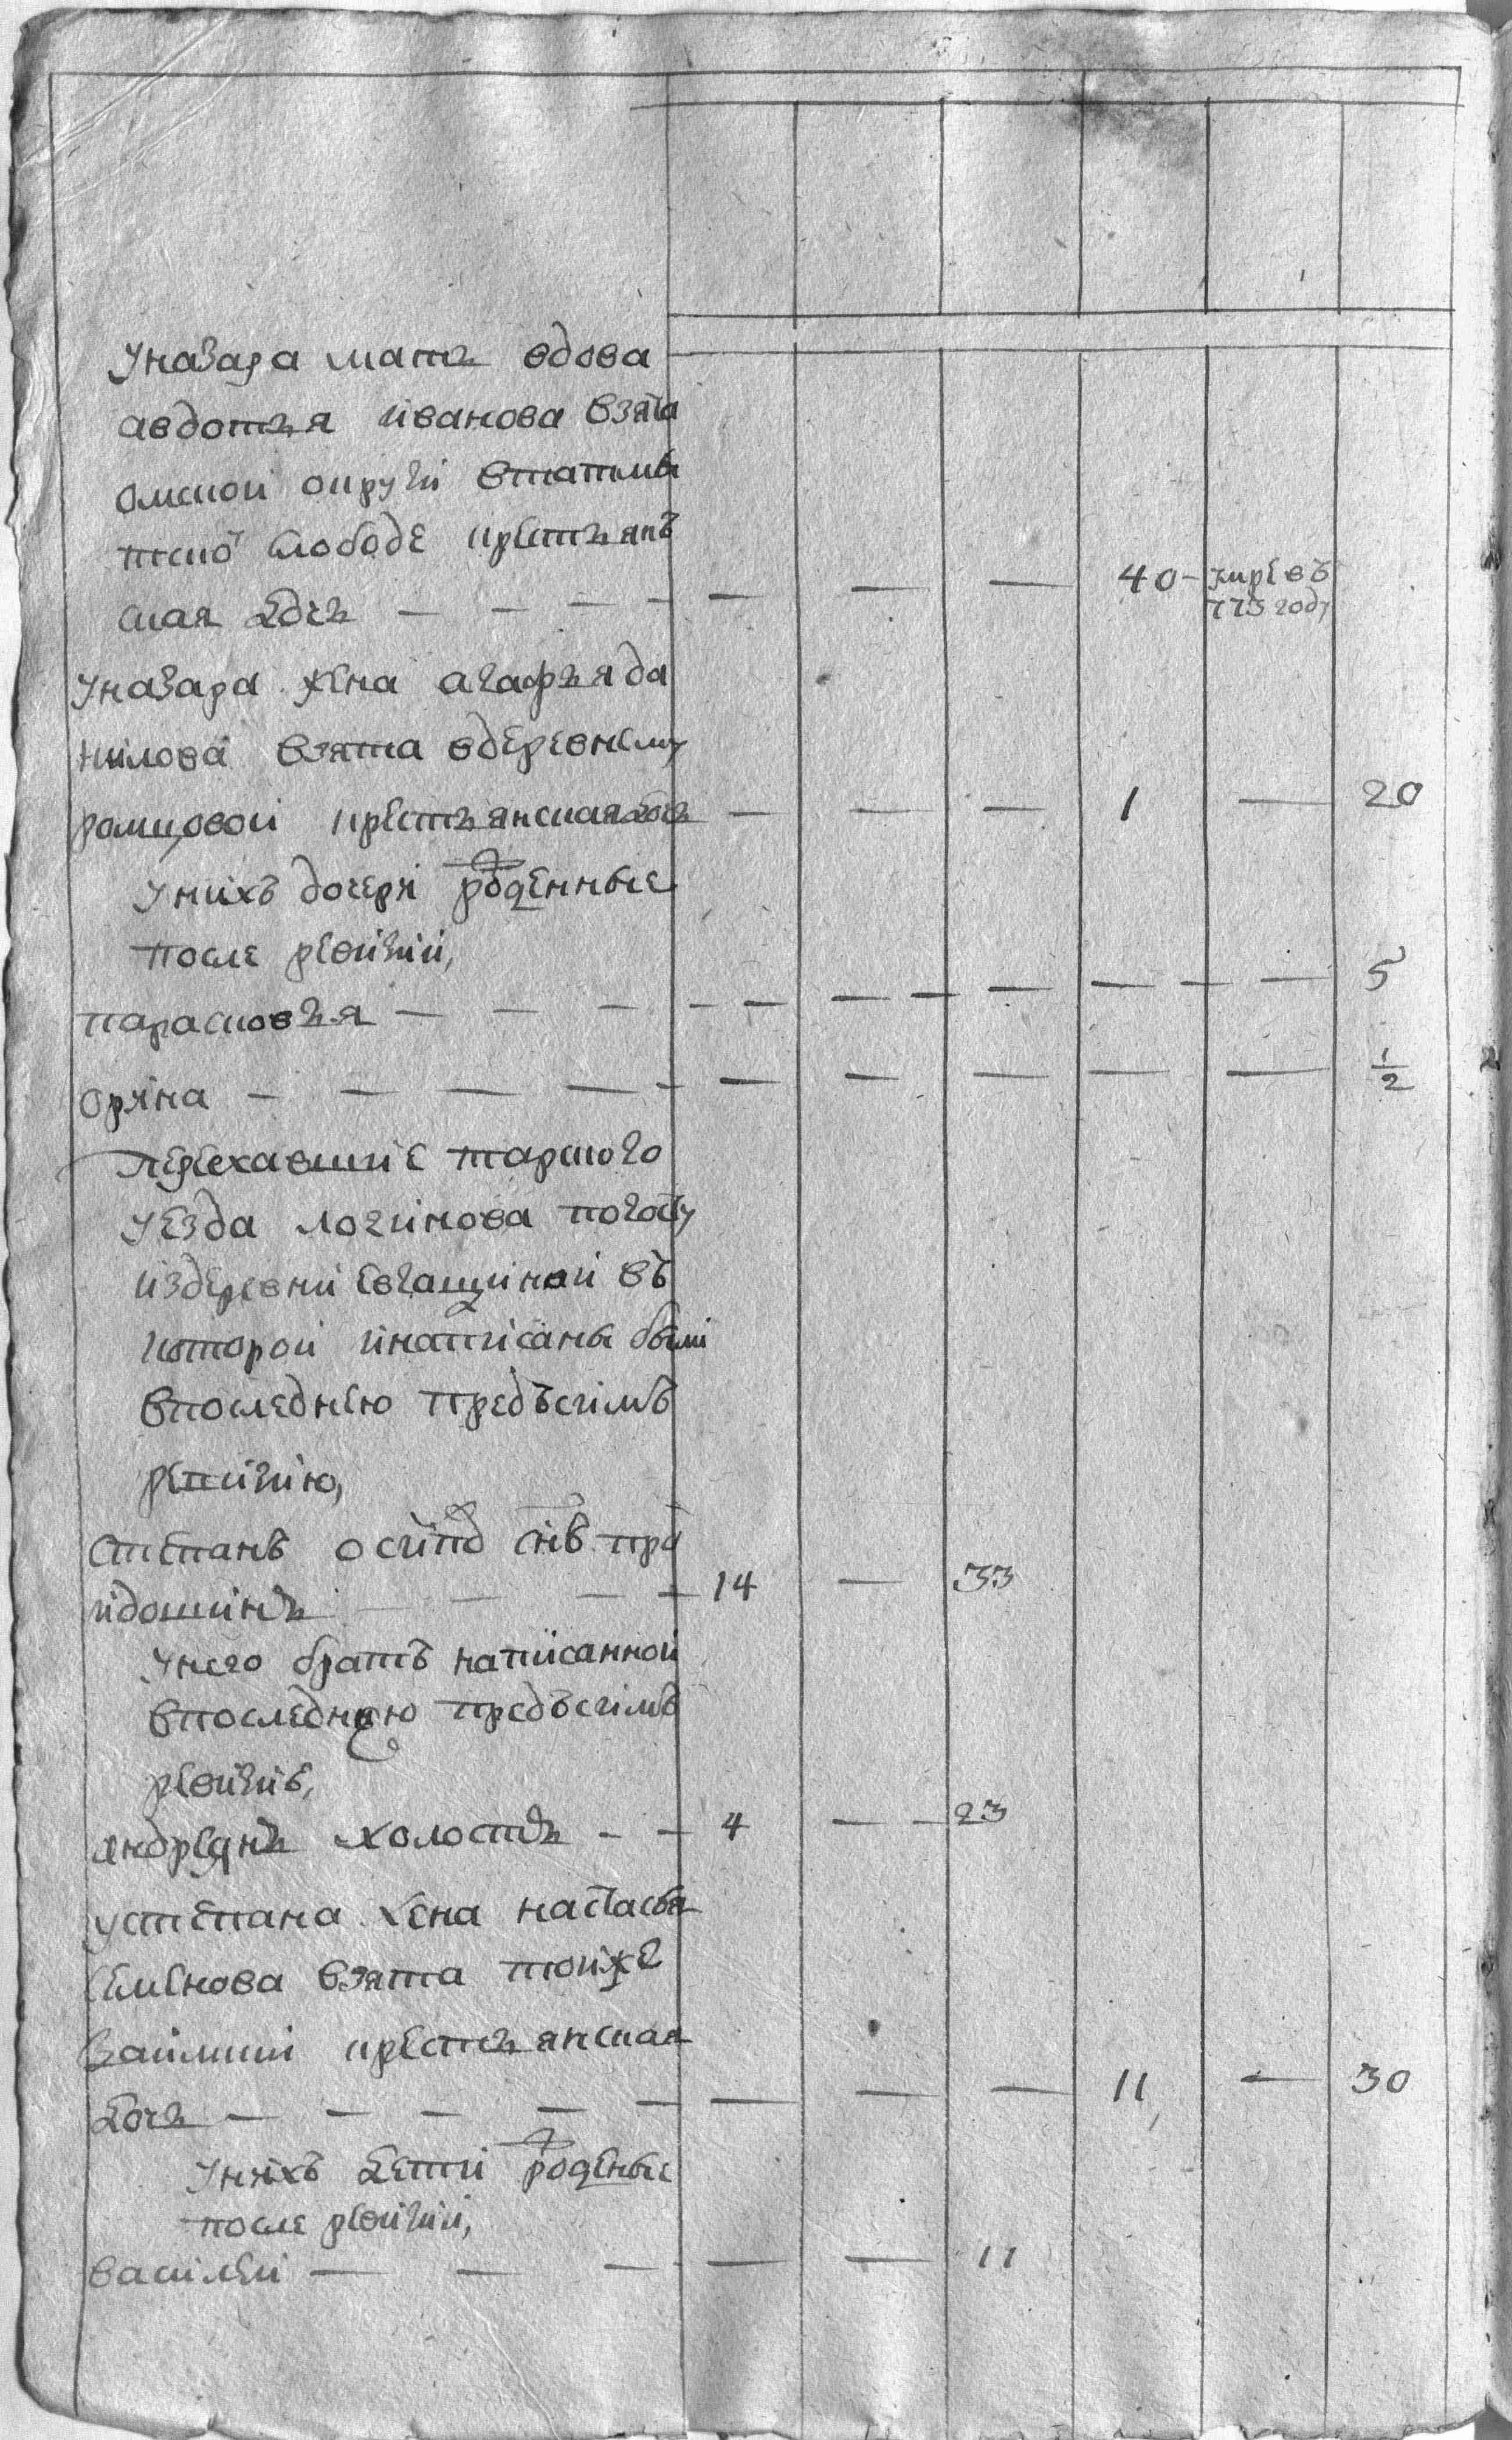 Уназара мать вдова
авдотья иванова взята
омской округи втатмы
тско слободе крестьянъ
ская дочь — — — — — — — 40 - умре въ
775 году
Уназара жена агафья да
нилова взята вдеревнему
ромцовой крестьянская дочь — — — 1 — 20
Унихъ дочери рожденные
после ревизии,
парасковья — — — — — — — — — — — 5
орина — — — — — — — — — — 1/2
переехавшие тарского
уезда логинова погосту
издеревни евгащиной въ
которой инаписаны были
впоследнею предъсимъ
ревизию,
степанъ осипо снъ про
идошинъ — — — 14 — 33
Унего братъ написанной
впоследнею предъсимъ
ревизию,
андреянъ холостъ - — 4 — — 23
устепана жена настасья
семенова взята тойже
крестьянская
дочь — — — — — — — — 11 — 30
Унихъ дети роденые
после ревизии,
василей — — — — — 11